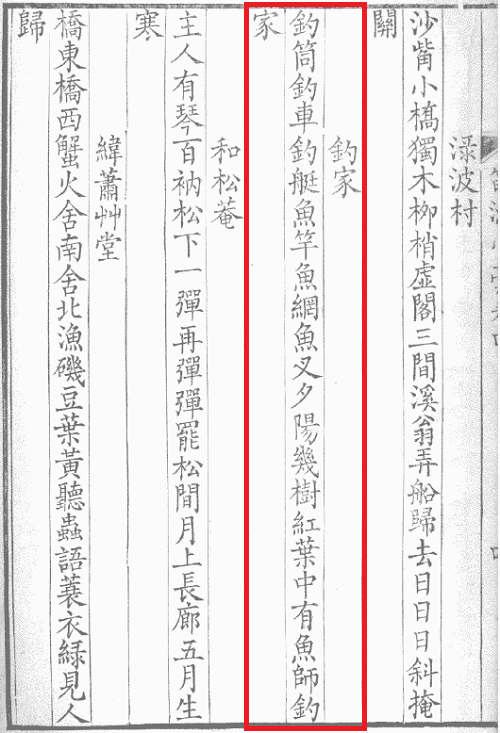 渌波村
沙觜小橋獨木栁梢虛閣三間溪翁弄船歸去日日日斜掩
關
釣家
釣筒釣車釣艇魚竿魚網魚叉夕陽幾樹紅葉中有魚師釣
家
和松菴
主人有琴百衲松下一彈再彈彈罷松間月上長廊五月生
寒
緯蕭艸堂
橋東橋西蟹火舍南舍北漁磯豆葉黃聽蟲語蓑衣綠見人
歸